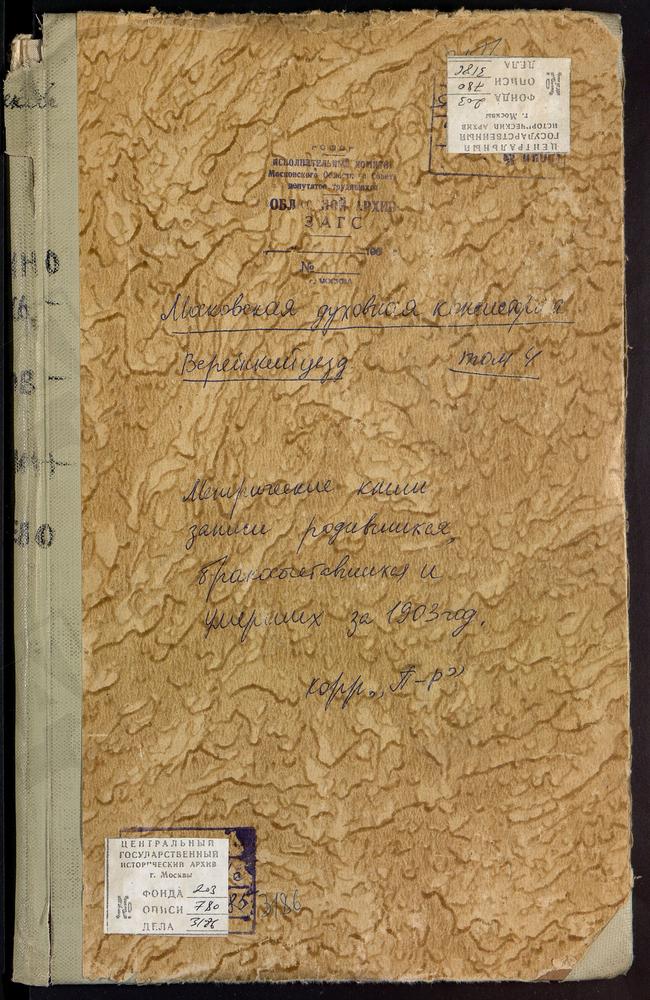 ЦЕНТРАЛЬНЫЙ
ГОСУДАРСТВЕННЫЙ
ИСТОРИЧЕСКИЙ АРХИВ
г. Москвы
ФОНДА 203
ОПИСИ 780
№ ДЕЛА 3186
ИСПОЛНИТЕЛЬНЫЙ КОМИТЕТ
Московского Областного Совета
депутатов трудящихся
ОБЛАСТНОЙ АРХИВ
ЗАГС
№
г. МОСКВА
Московская духовная консистория
Верейский уезд том 4
Метрические книги
записи родившихся,
бракосочетавшихся и
умерших за 1903 год.
корр. „П-р"
ЦЕНТРАЛЬНЫЙ
ГОСУДАРСТВЕННЫЙ
ИСТОРИЧЕСКИЙ АРХИВ
г. Москвы
ФОНДА 203
ОПИСИ 780
№ ДЕЛА 3186
3186